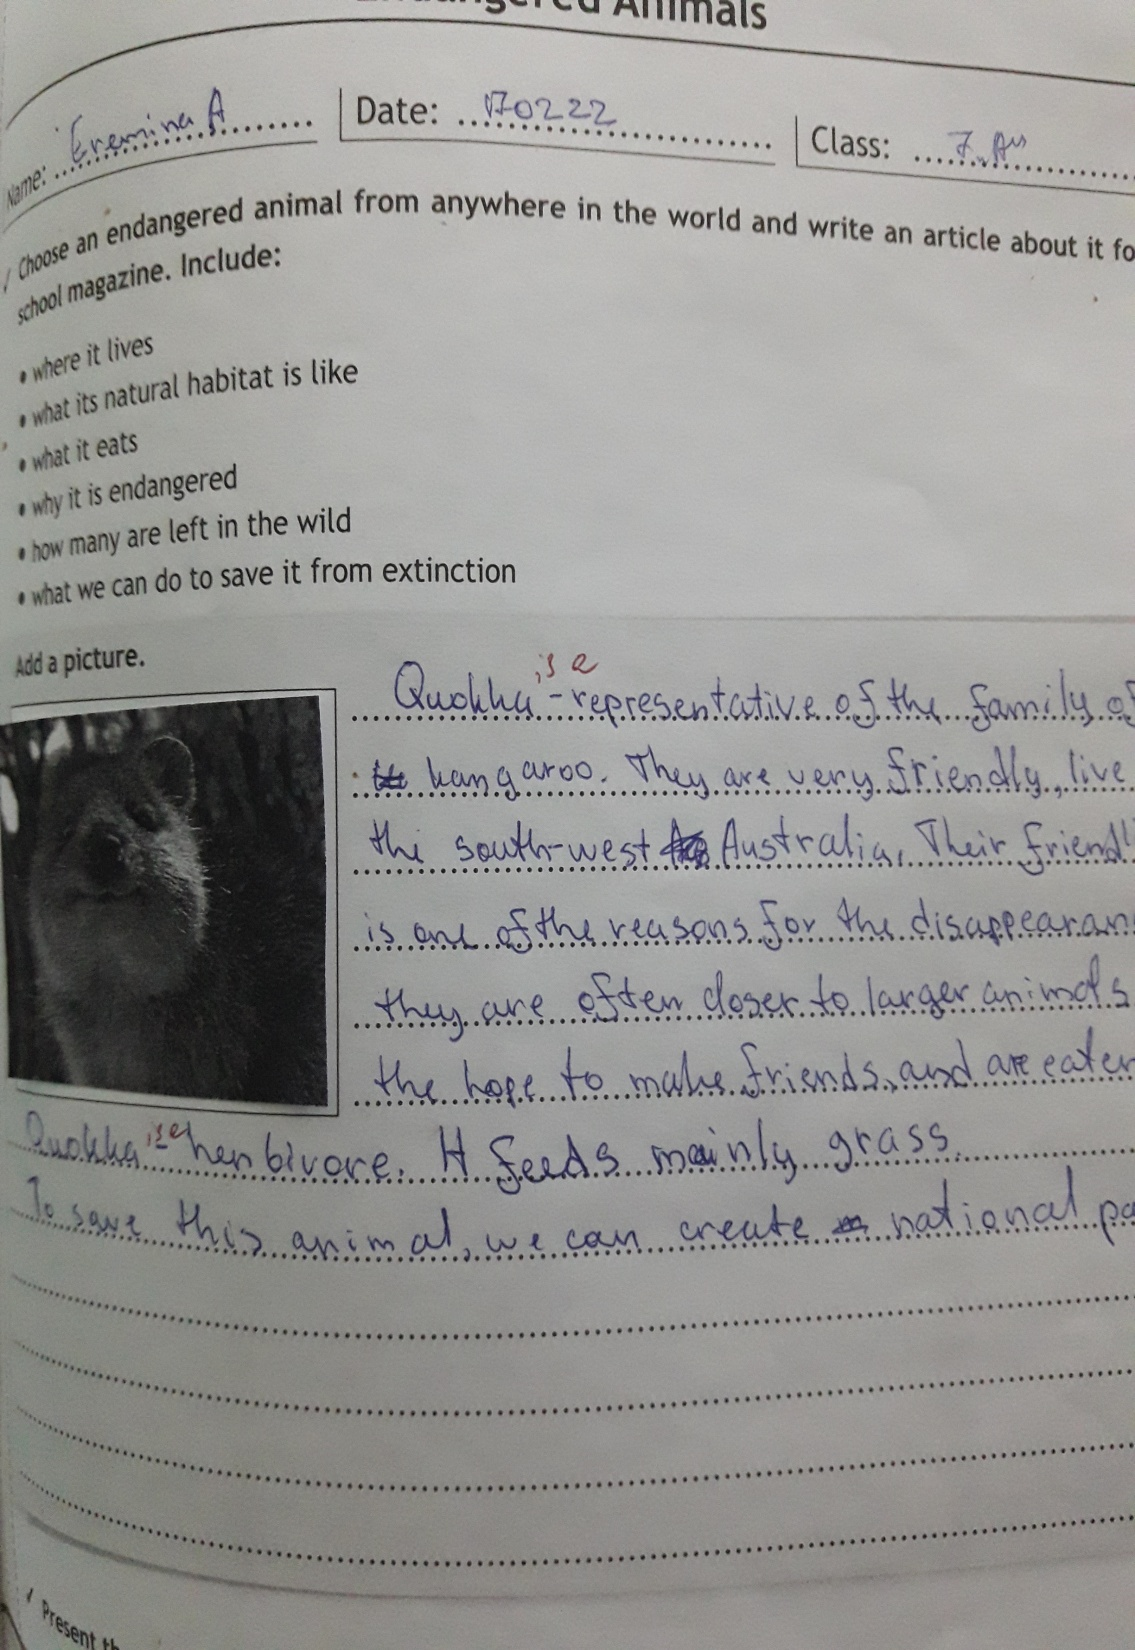 Endangered Animals
Name: Eremina A
Date: 170222
Class: 7 "A"
Choose an endangered animal from anywhere in the world and write an article about it fo
school magazine. Include:
• where it lives
• what its natural habitat is like
• what it eats
• why it is endangered
• how many are left in the wild
• what we can do to save it from extinction
Add a picture.
is a
Quokka - representative of the family of
kangaroo. They are very friendly, live
the south-west Australia. Their friendl
is one of the reasons for the disappearan
they are often closer to larger animals
the hope to make friends, and are eaten
Quokka is a herbivore. It feeds mainly grass.
To save this animal, we can create national pa
Present th